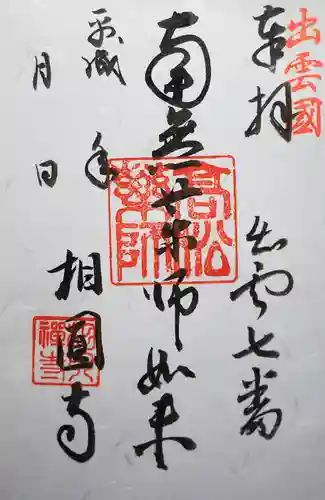 出雲國
奉拝
出雲七番
南無薬師如来
高松薬師
平成 年
月 日
相圓寺